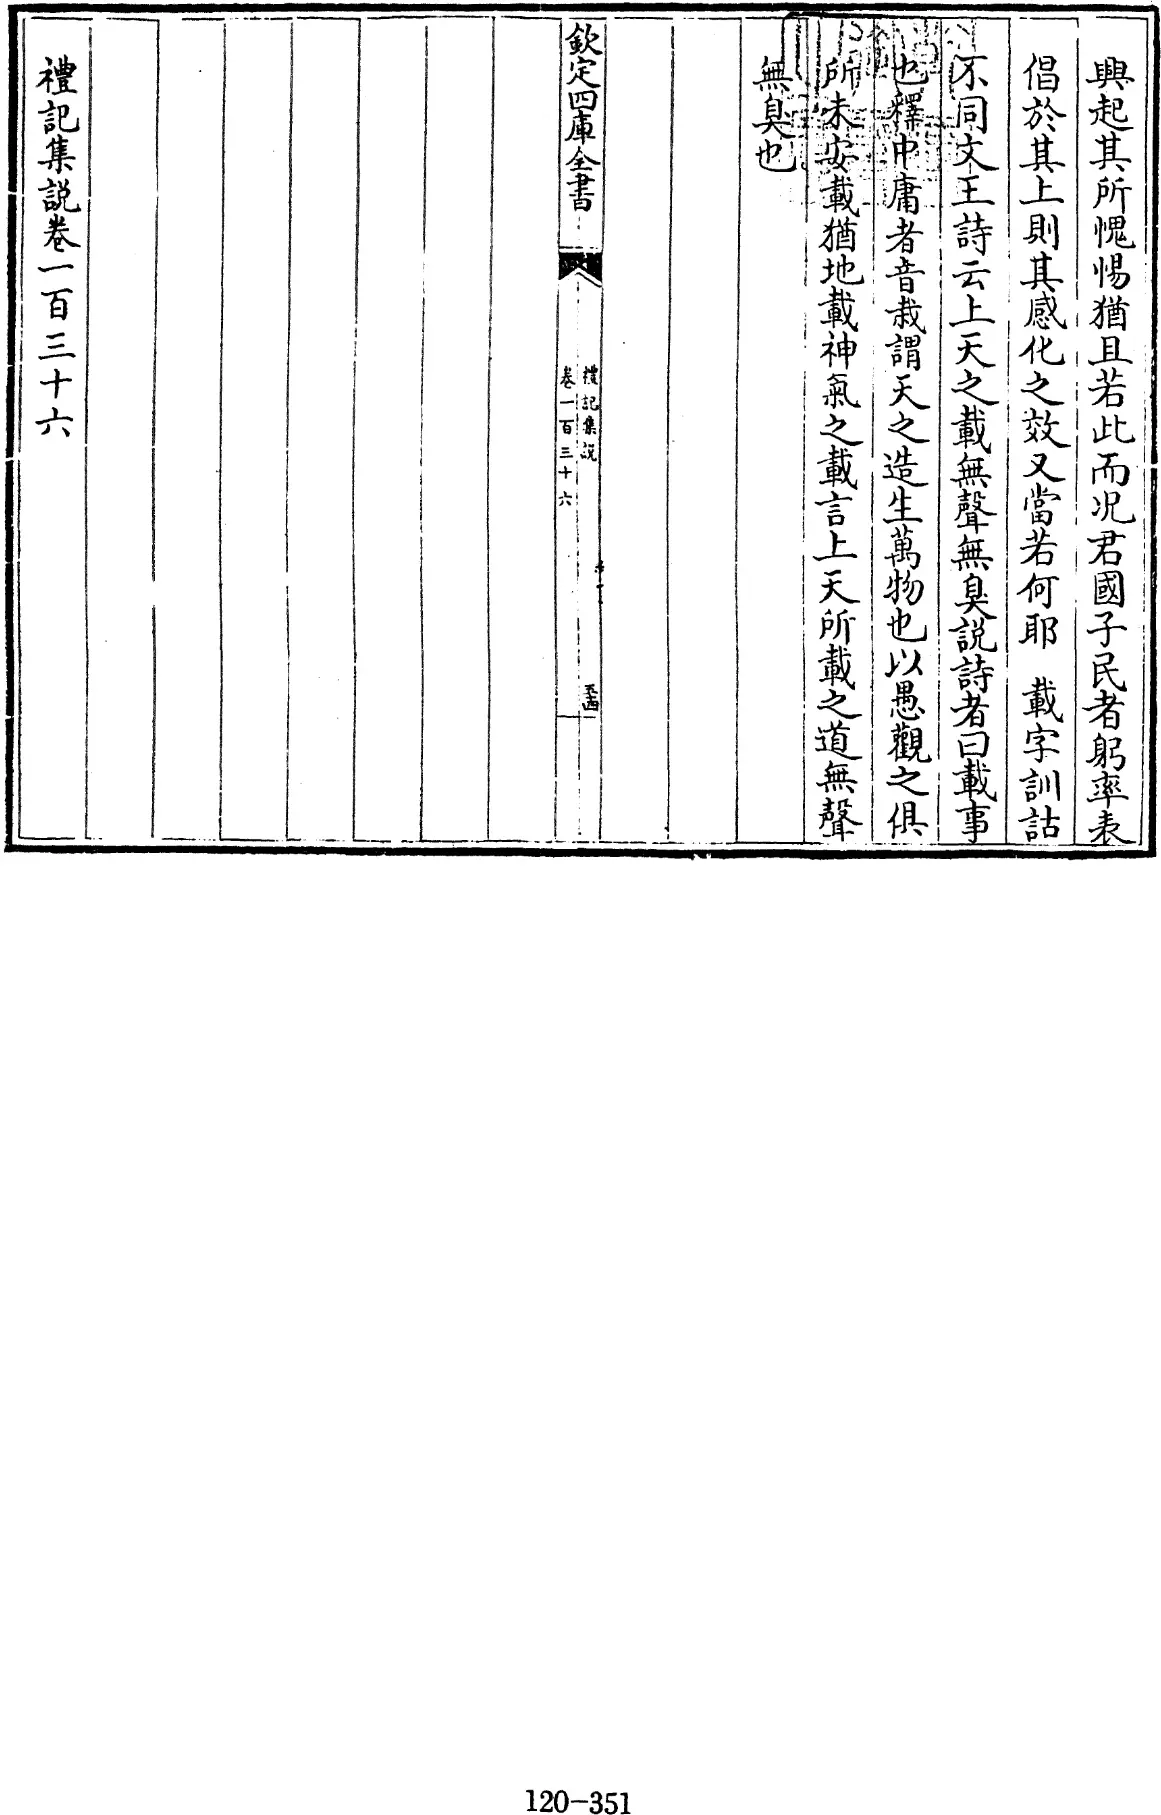 興起其所愧惕猶且若此而况君國子民者躬率表
倡於其上則其感化之效又當若何耶　載字訓詁
不同文王詩云上天之載無聲無臭說詩者曰載事
也釋中庸者音栽謂天之造生萬物也以愚觀之俱
所未安載猶地載神氣之載言上天所載之道無聲
無臭也
欽定四庫全書
禮記集說
卷一百三十六
禮記集說卷一百三十六
120-351